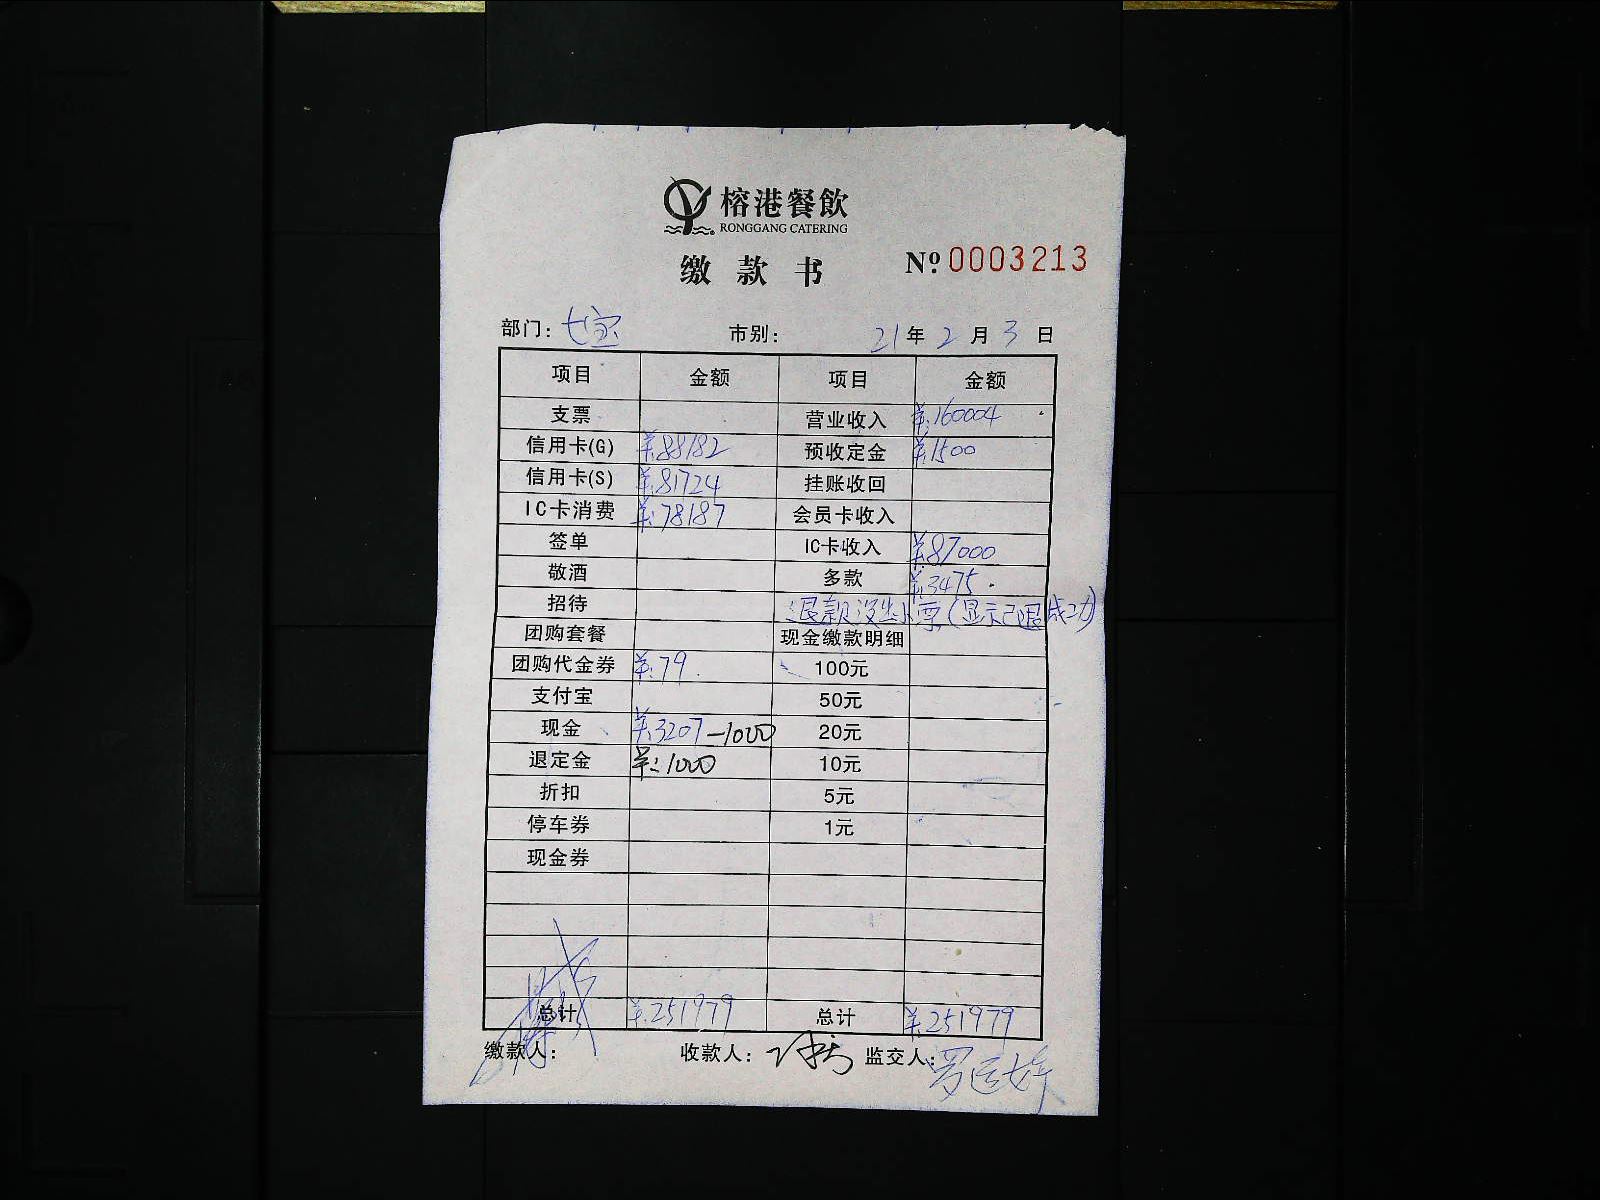 榕港餐飲
RONGGANG CATERING
缴款书 Nº 0003213
部门: 七宝 市别: 21年2月3日
项目 金额 项目 金额
支票 营业收入 ¥:160004
信用卡(G) ¥:88182 预收定金 ¥:1500
信用卡(S) ¥:81724 挂账收回
IC卡消费 ¥:78187 会员卡收入
签单 IC卡收入 ¥:87000
敬酒 多款 ¥:3475.
招待 退款没出小票(显示已退成功)
团购套餐 现金缴款明细
团购代金券 ¥:79. 100元
支付宝 50元
现金 ¥:3207-1000 20元
退定金 ¥:1000 10元
折扣 5元
停车券 1元
现金券
总计 ¥:251979 总计 ¥:251979
缴款人: 收款人: 监交人: